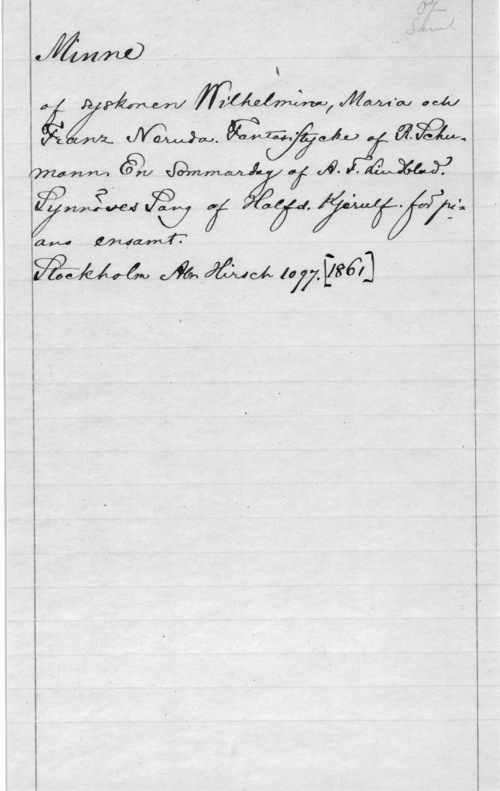 Minne
af syskonen Wilhelmina, Maria och
Franz Neruda. Fantasistycke af R. Schu-
mann. En Sommardag af A. F. Lindblad.
Synnöves Sang af Halfd. Kjerulf. för pi-
ano ensamt.
Stockholm Abr Hirsch 1097. [1861]